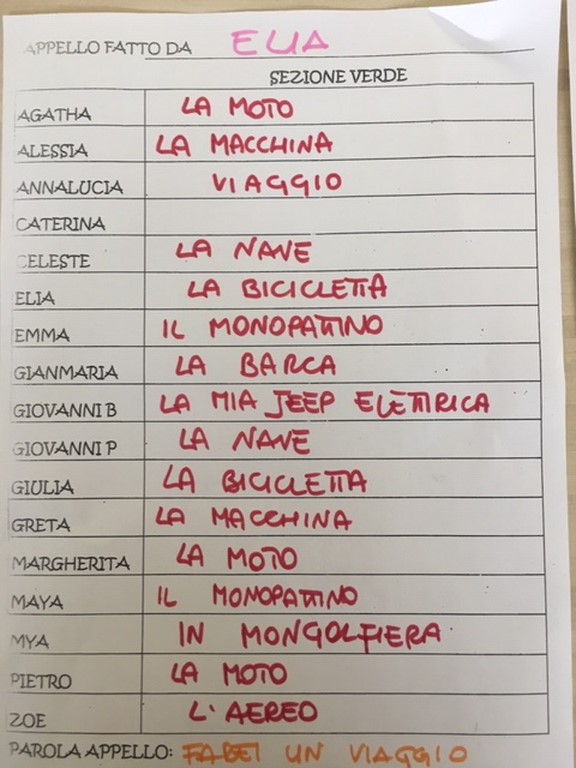 APPELLO FATTO DA ELIA
SEZIONE VERDE
AGATHA LA MOTO
ALESSIA LA MACCHINA
ANNALUCIA VIAGGIO
CATERINA
CELESTE LA NAVE
ELIA LA BICICLETTA
EMMA IL MONOPATTINO
GIANMARIA LA BARCA
GIOVANNI B LA MIA JEEP ELETTRICA
GIOVANNI P LA NAVE
GIULIA LA BICICLETTA
GRETA LA MACCHINA
MARGHERITA LA MOTO
MAYA IL MONOPATTINO
MYA IN MONGOLFIERA
PIETRO LA MOTO
ZOE L'AEREO
PAROLA APPELLO: FAREI UN VIAGGIO